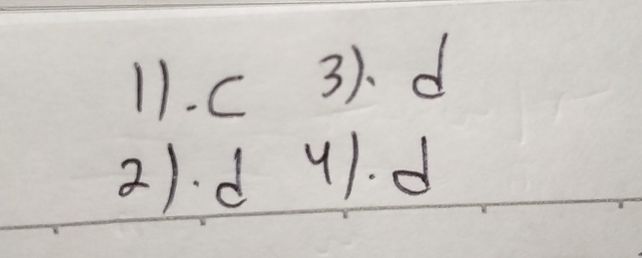 1).c 3).d
2).d 4).d